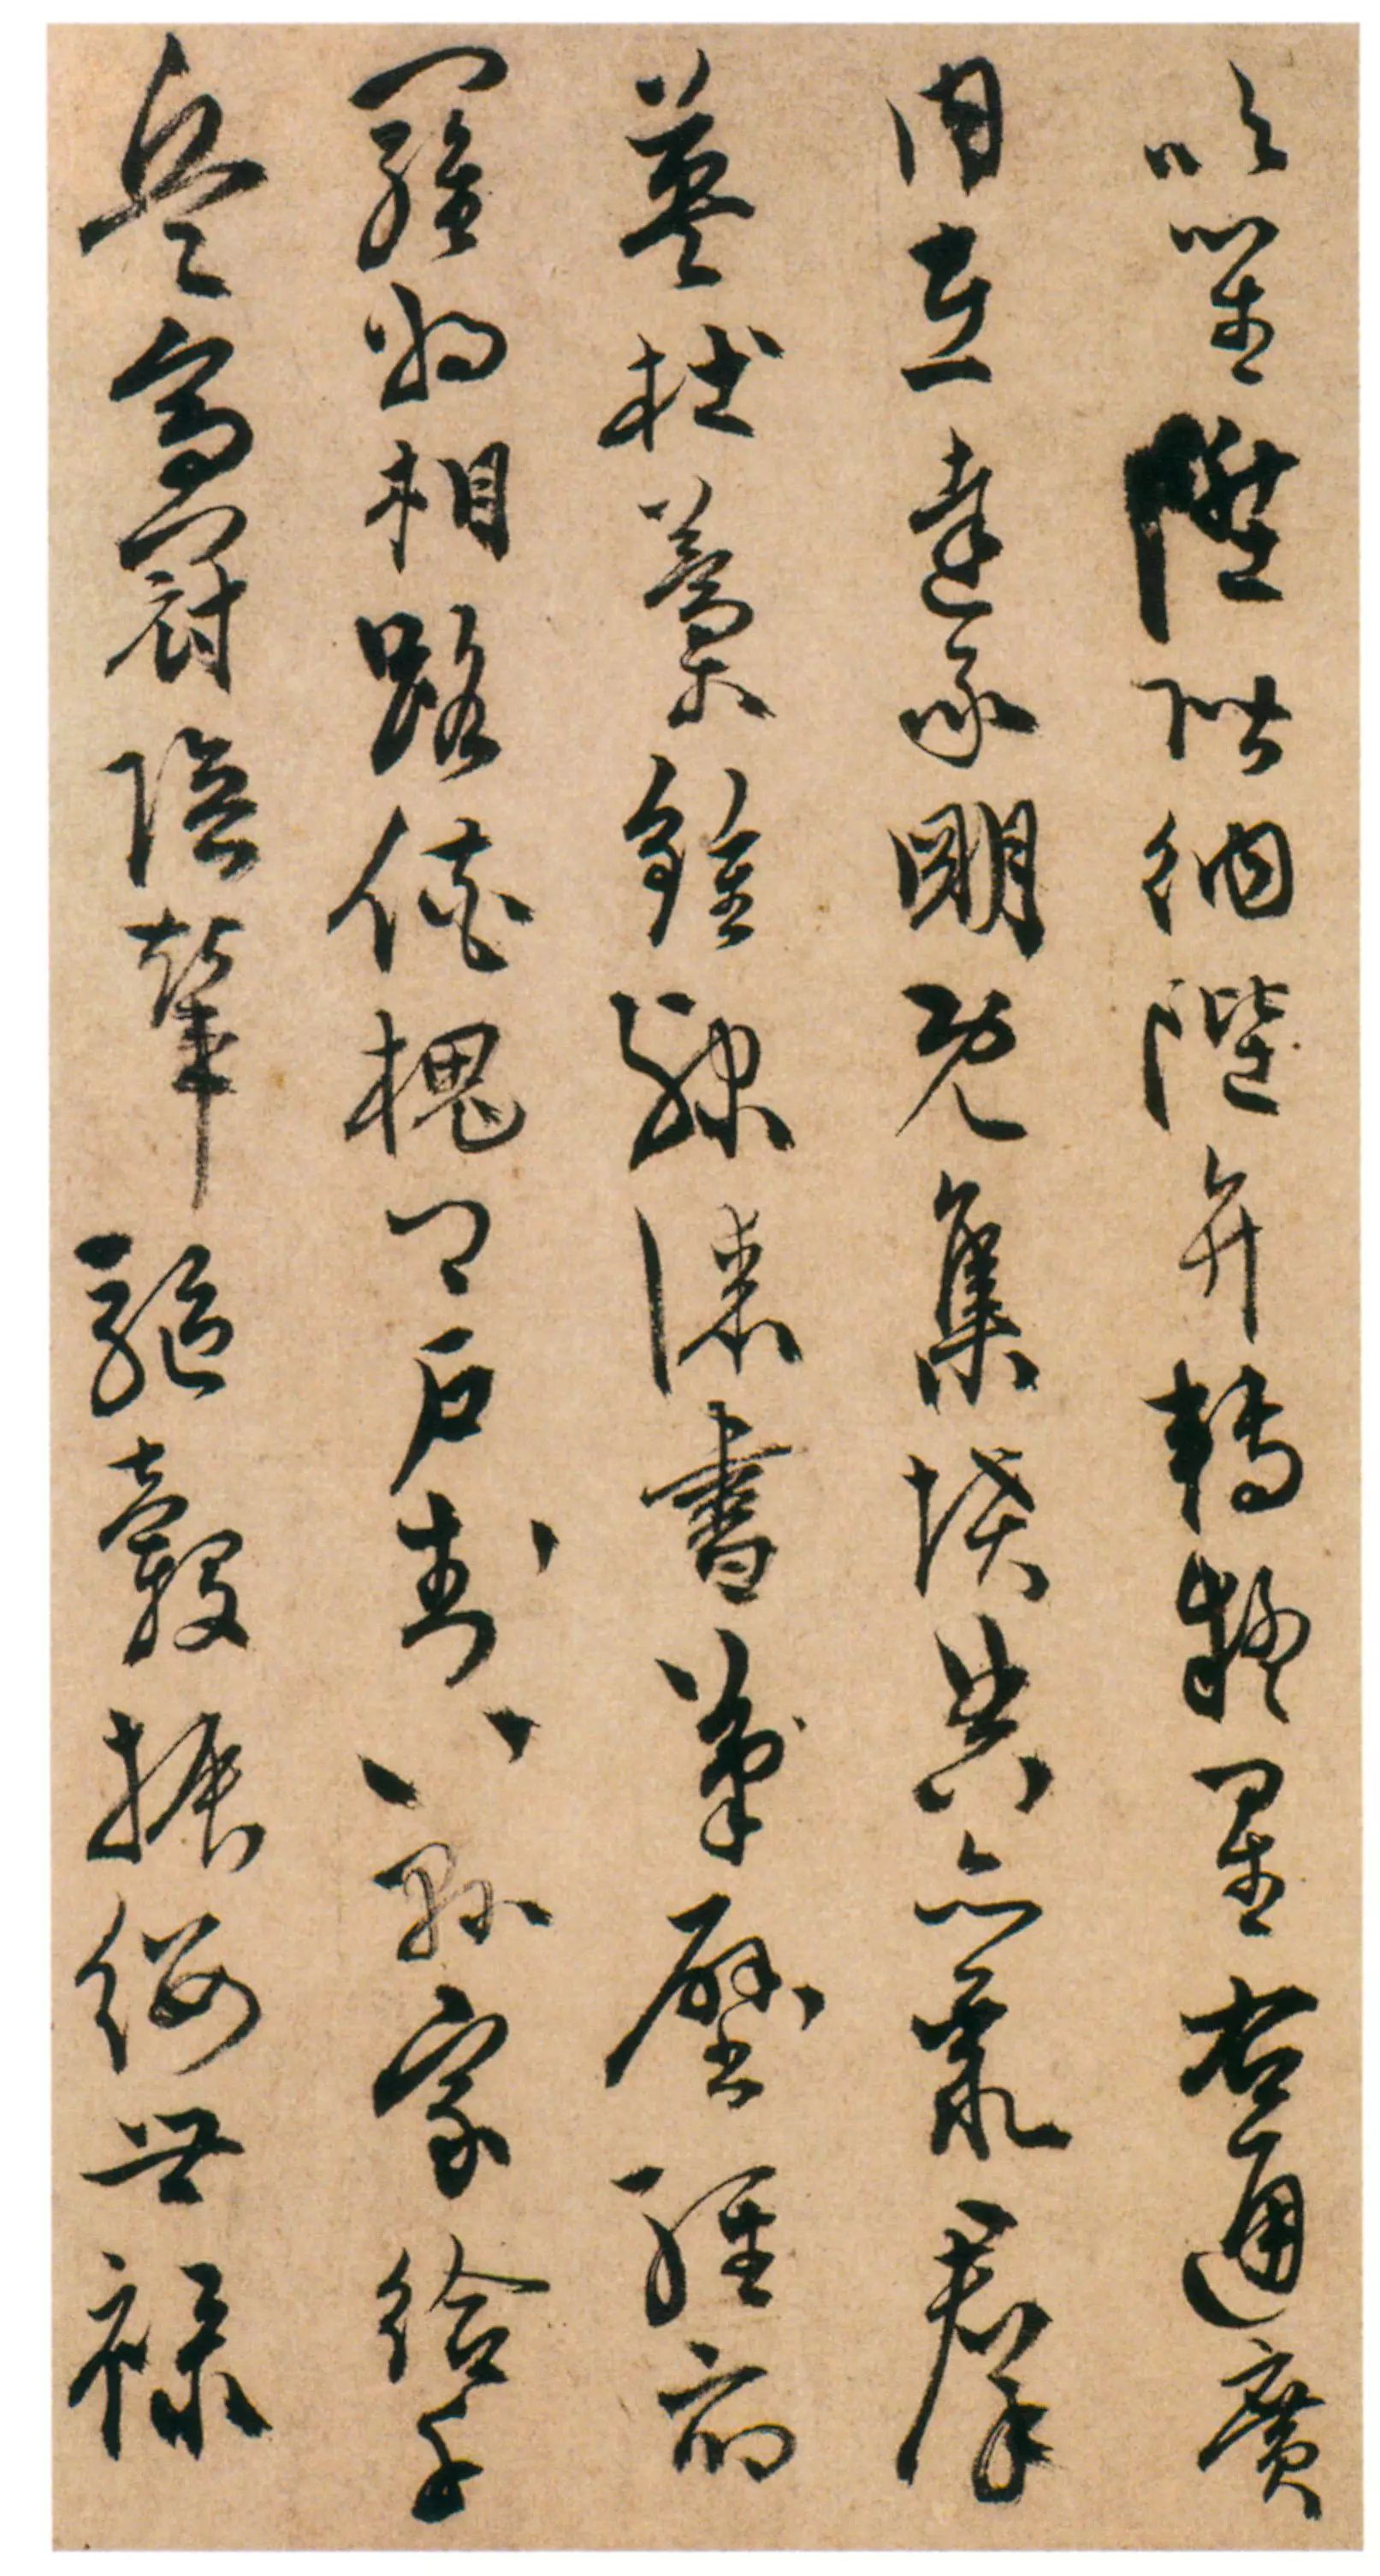 吹笙陞階納陛弁轉疑星右通廣
內左達承明既集墳典亦聚羣
英杜稾鍾隸漆書筆壁經府
羅將相路俠槐卿戶封八縣家給千
兵高冠陪輦驅轂振纓世祿